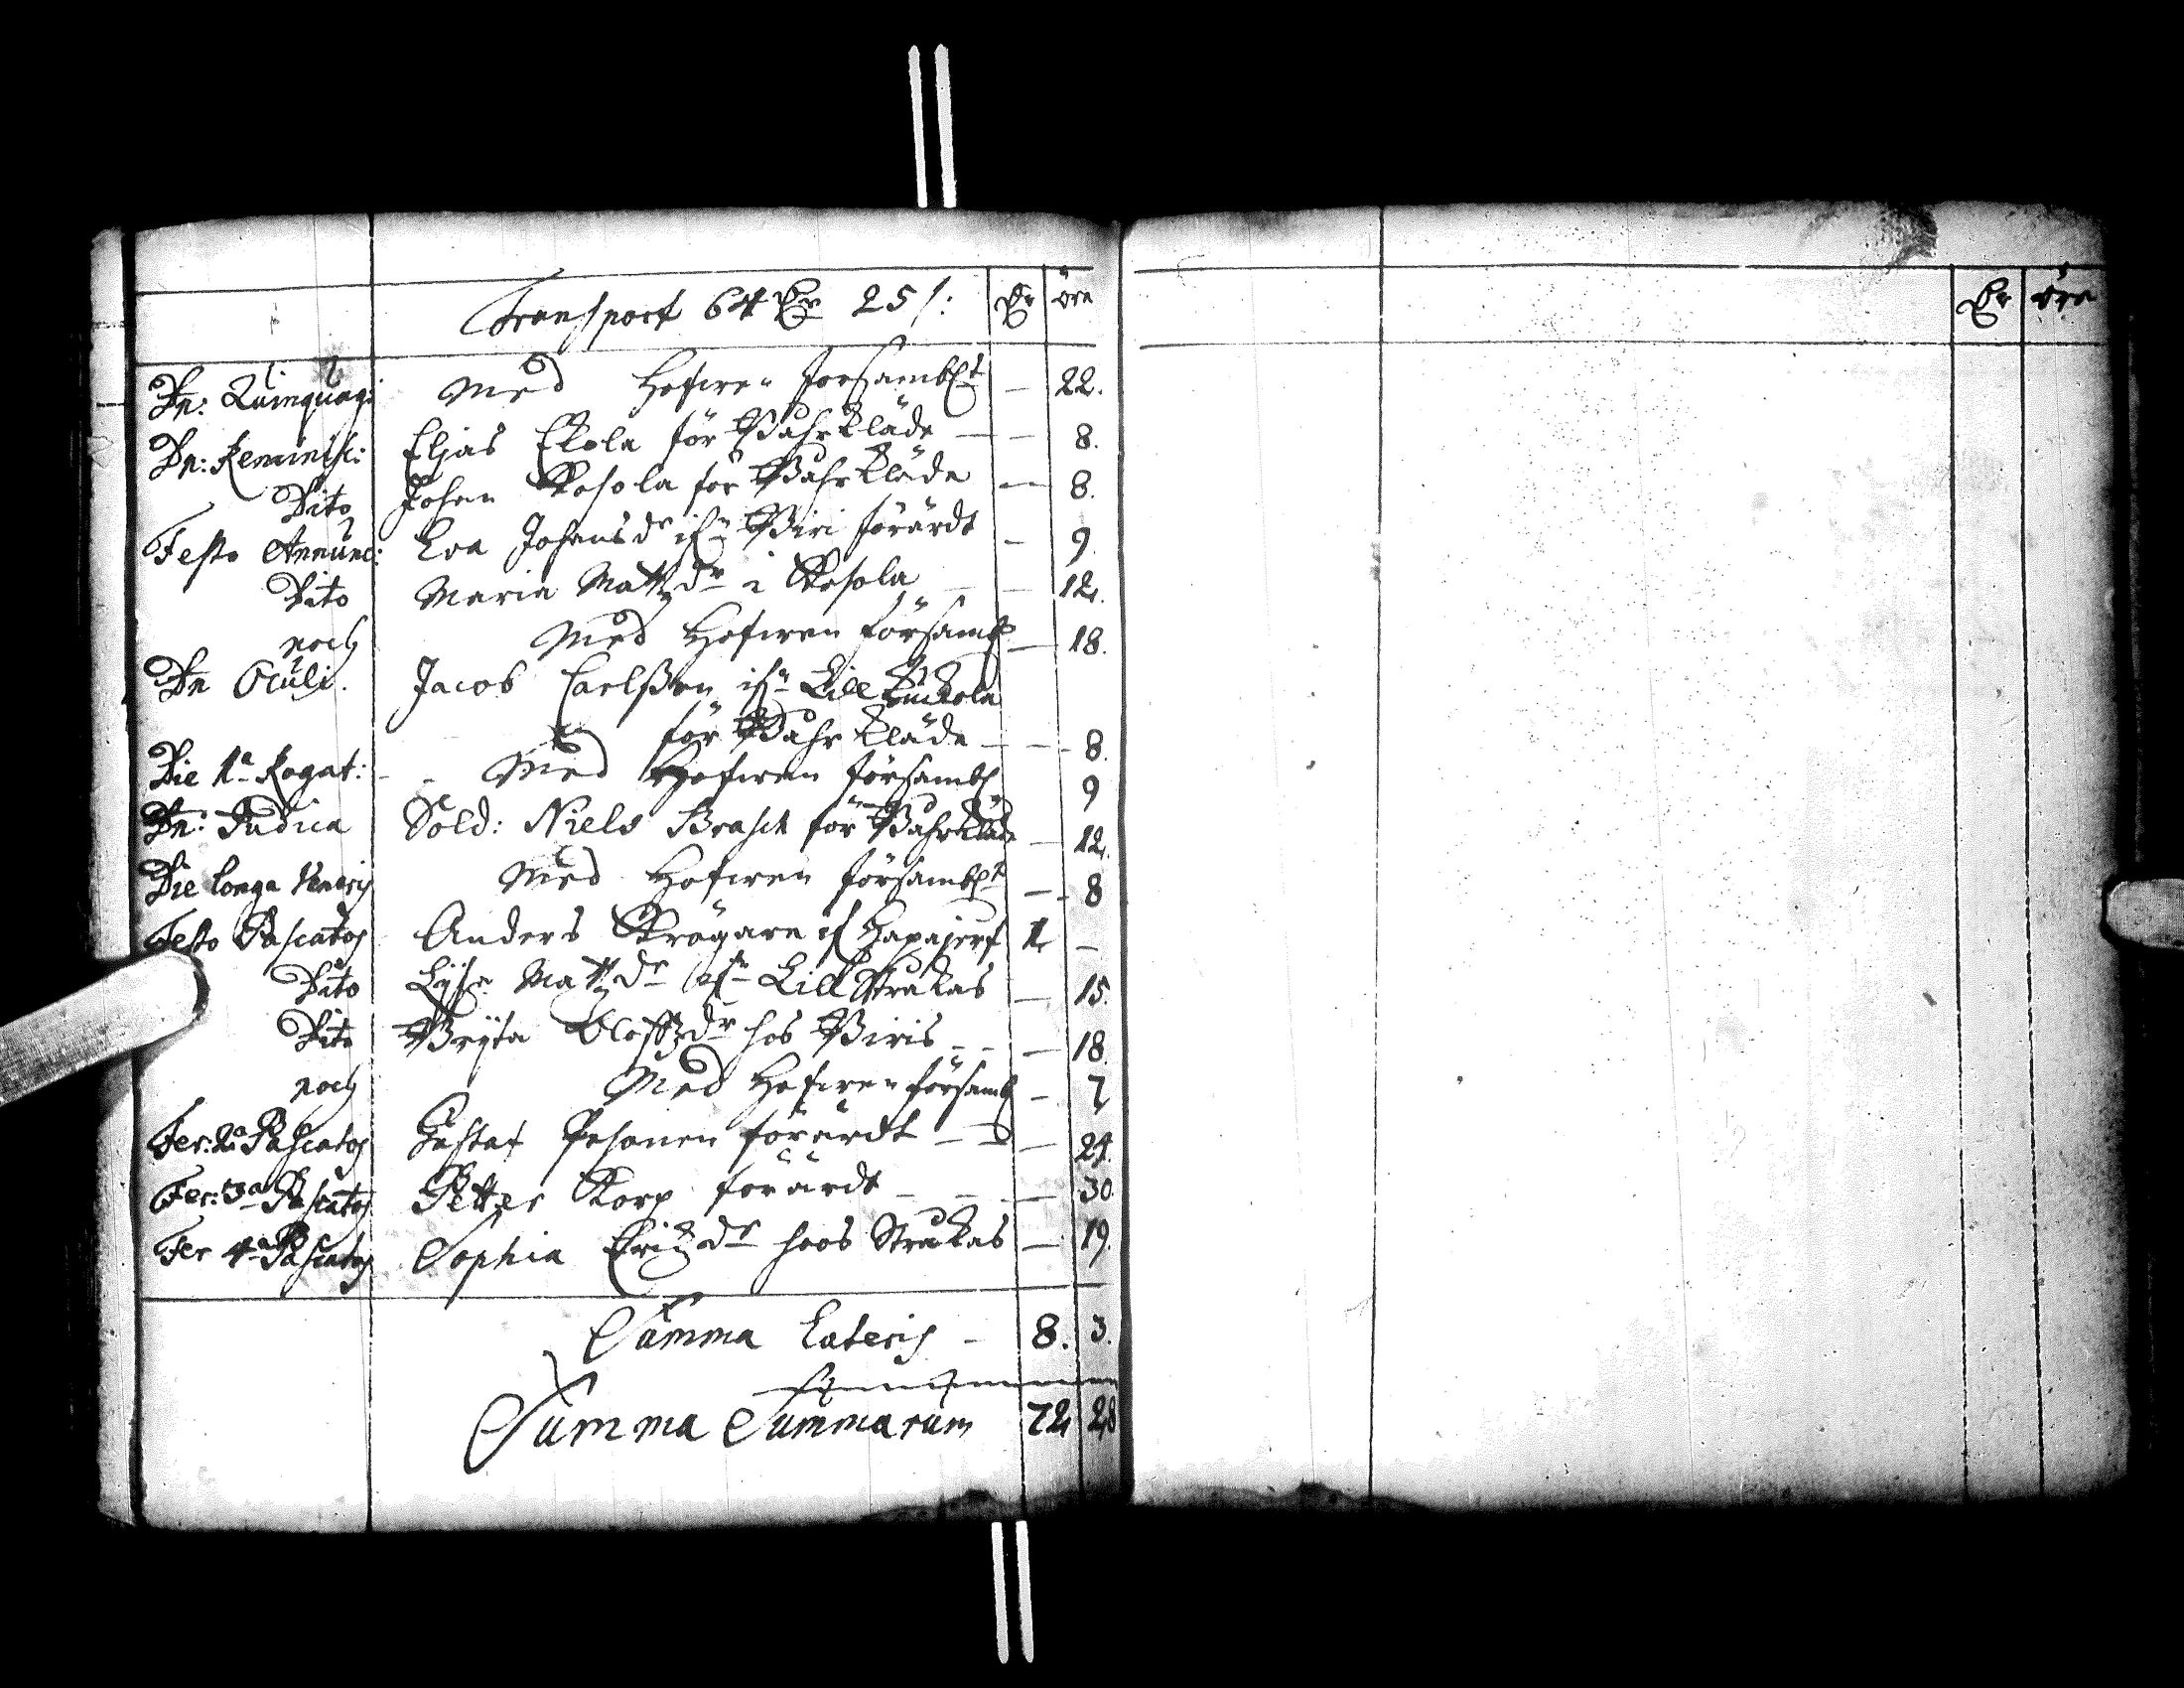 Transport 64 Dr 25 /: Dr öre
Dn: Quinquagi Med Hofwen Forsambl:t — 22.
Dn: Reminisc: Eljas Ekola för Bahrkläde — 8.
Dito Johan Kosola för Bahrkläde — 8.
Festo Annunc: Eva Johansdr ifn Biri förärdt — 9.
Dito Maria Mattzdr i Kosola — 12.
noch Med Hofwen försambl — 18.
Dn Oculi. Jacob Carlsson ifn Lill
för Bahrkläde — 8.
Die 1a Rogat: Med Hofwen försambl 9
Dn: Judica Sold: Niels Brasck för Bahrkläde — 12.
Die longa Veneris Med Hofwen försambl:t — 8
Festo Pascatos Anders Krögare if Hapajerf 1 —
Dito Lijsa Mattzdr ifn Lill Strakas — 15.
Dito Brijta Oloffzdr hos Biris — 18.
noch Med Hofwen försambl — 7
Fer: 2a Pascatos Gustaf Pesonen förärdt — 24.
Fer: 3a Pascatos Petter Korp förärdt — 30.
Fer 4a Pascatos Sophia Erichzdr hoos Strakas — 19.
Summa Lateris — 8. 3.
Summa Summarum 72 28
Dr öre